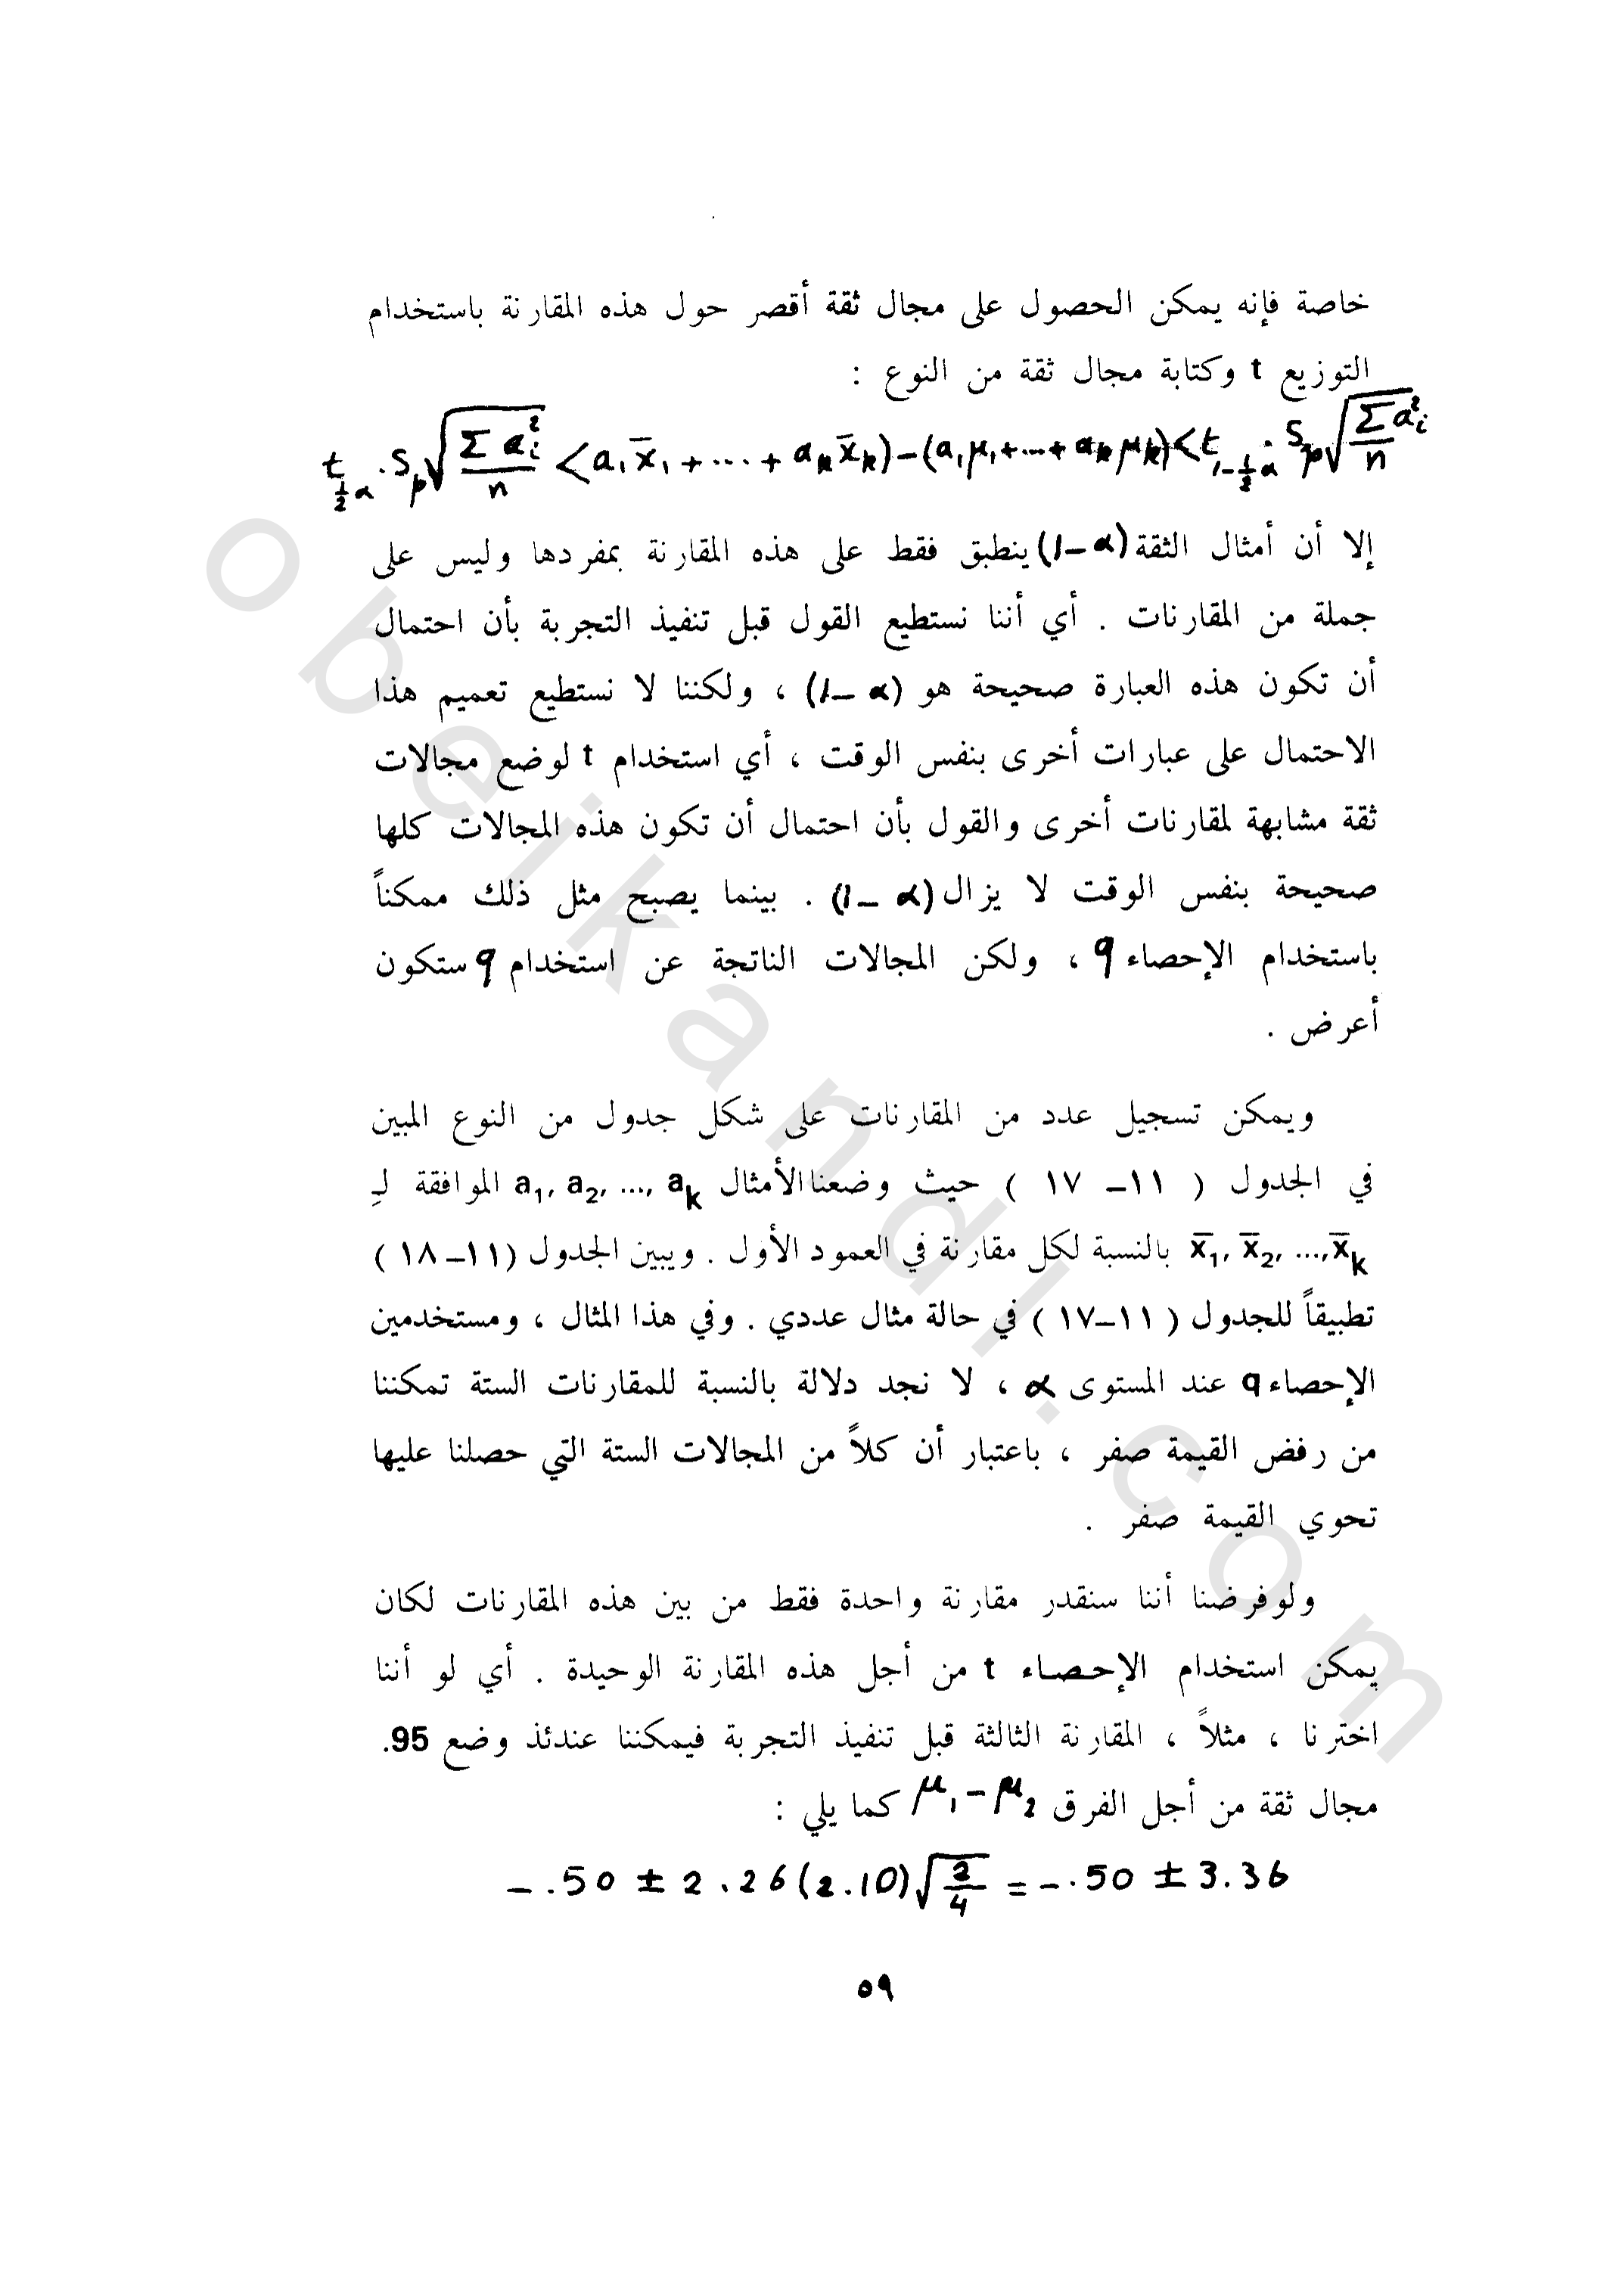 خاصة فإنه يمكن الحصول على مجال ثقة أقصر حول هذه المقارنة باستخدام
التوزيع t وكتابة مجال ثقة من النوع :
t_{½α} . S_p √(Σ a_i² / n) < (a₁x̄₁ + ... + a_k x̄_k) − (a₁μ₁ + ... + a_k μ_k) < t_{1−½α} . S_p √(Σ a_i² / n)
إلا أن أمثال الثقة (1−α) ينطبق فقط على هذه المقارنة بمفردها وليس على
جملة من المقارنات . أي أننا نستطيع القول قبل تنفيذ التجربة بأن احتمال
أن تكون هذه العبارة صحيحة هو (1−α) ، ولكننا لا نستطيع تعميم هذا
الاحتمال على عبارات أخرى بنفس الوقت ، أي استخدام t لوضع مجالات
ثقة مشابهة لمقارنات أخرى والقول بأن احتمال أن تكون هذه المجالات كلها
صحيحة بنفس الوقت لا يزال (1−α) . بينما يصبح مثل ذلك ممكناً
باستخدام الإحصاء q ، ولكن المجالات الناتجة عن استخدام q ستكون
أعرض .
ويمكن تسجيل عدد من المقارنات على شكل جدول من النوع المبين
في الجدول ( ١١– ١٧ ) حيث وضعنا الأمثال a₁, a₂, ..., a_k الموافقة لـِ
x̄₁, x̄₂, ..., x̄_k بالنسبة لكل مقارنة في العمود الأول . ويبين الجدول (١١– ١٨ )
تطبيقاً للجدول ( ١١–١٧ ) في حالة مثال عددي . وفي هذا المثال ، ومستخدمين
الإحصاء q عند المستوى α ، لا نجد دلالة بالنسبة للمقارنات الستة تمكننا
من رفض القيمة صفر ، باعتبار أن كلاً من المجالات الستة التي حصلنا عليها
تحوي القيمة صفر .
ولو فرضنا أننا سنقدر مقارنة واحدة فقط من بين هذه المقارنات لكان
يمكن استخدام الإحصاء t من أجل هذه المقارنة الوحيدة . أي لو أننا
اخترنا ، مثلاً ، المقارنة الثالثة قبل تنفيذ التجربة فيمكننا عندئذ وضع .95
مجال ثقة من أجل الفرق μ₁ − μ₂ كما يلي :
−.50 ± 2.26(2.10)√(2/4) = −.50 ± 3.36
٥٩
obeikandl.com